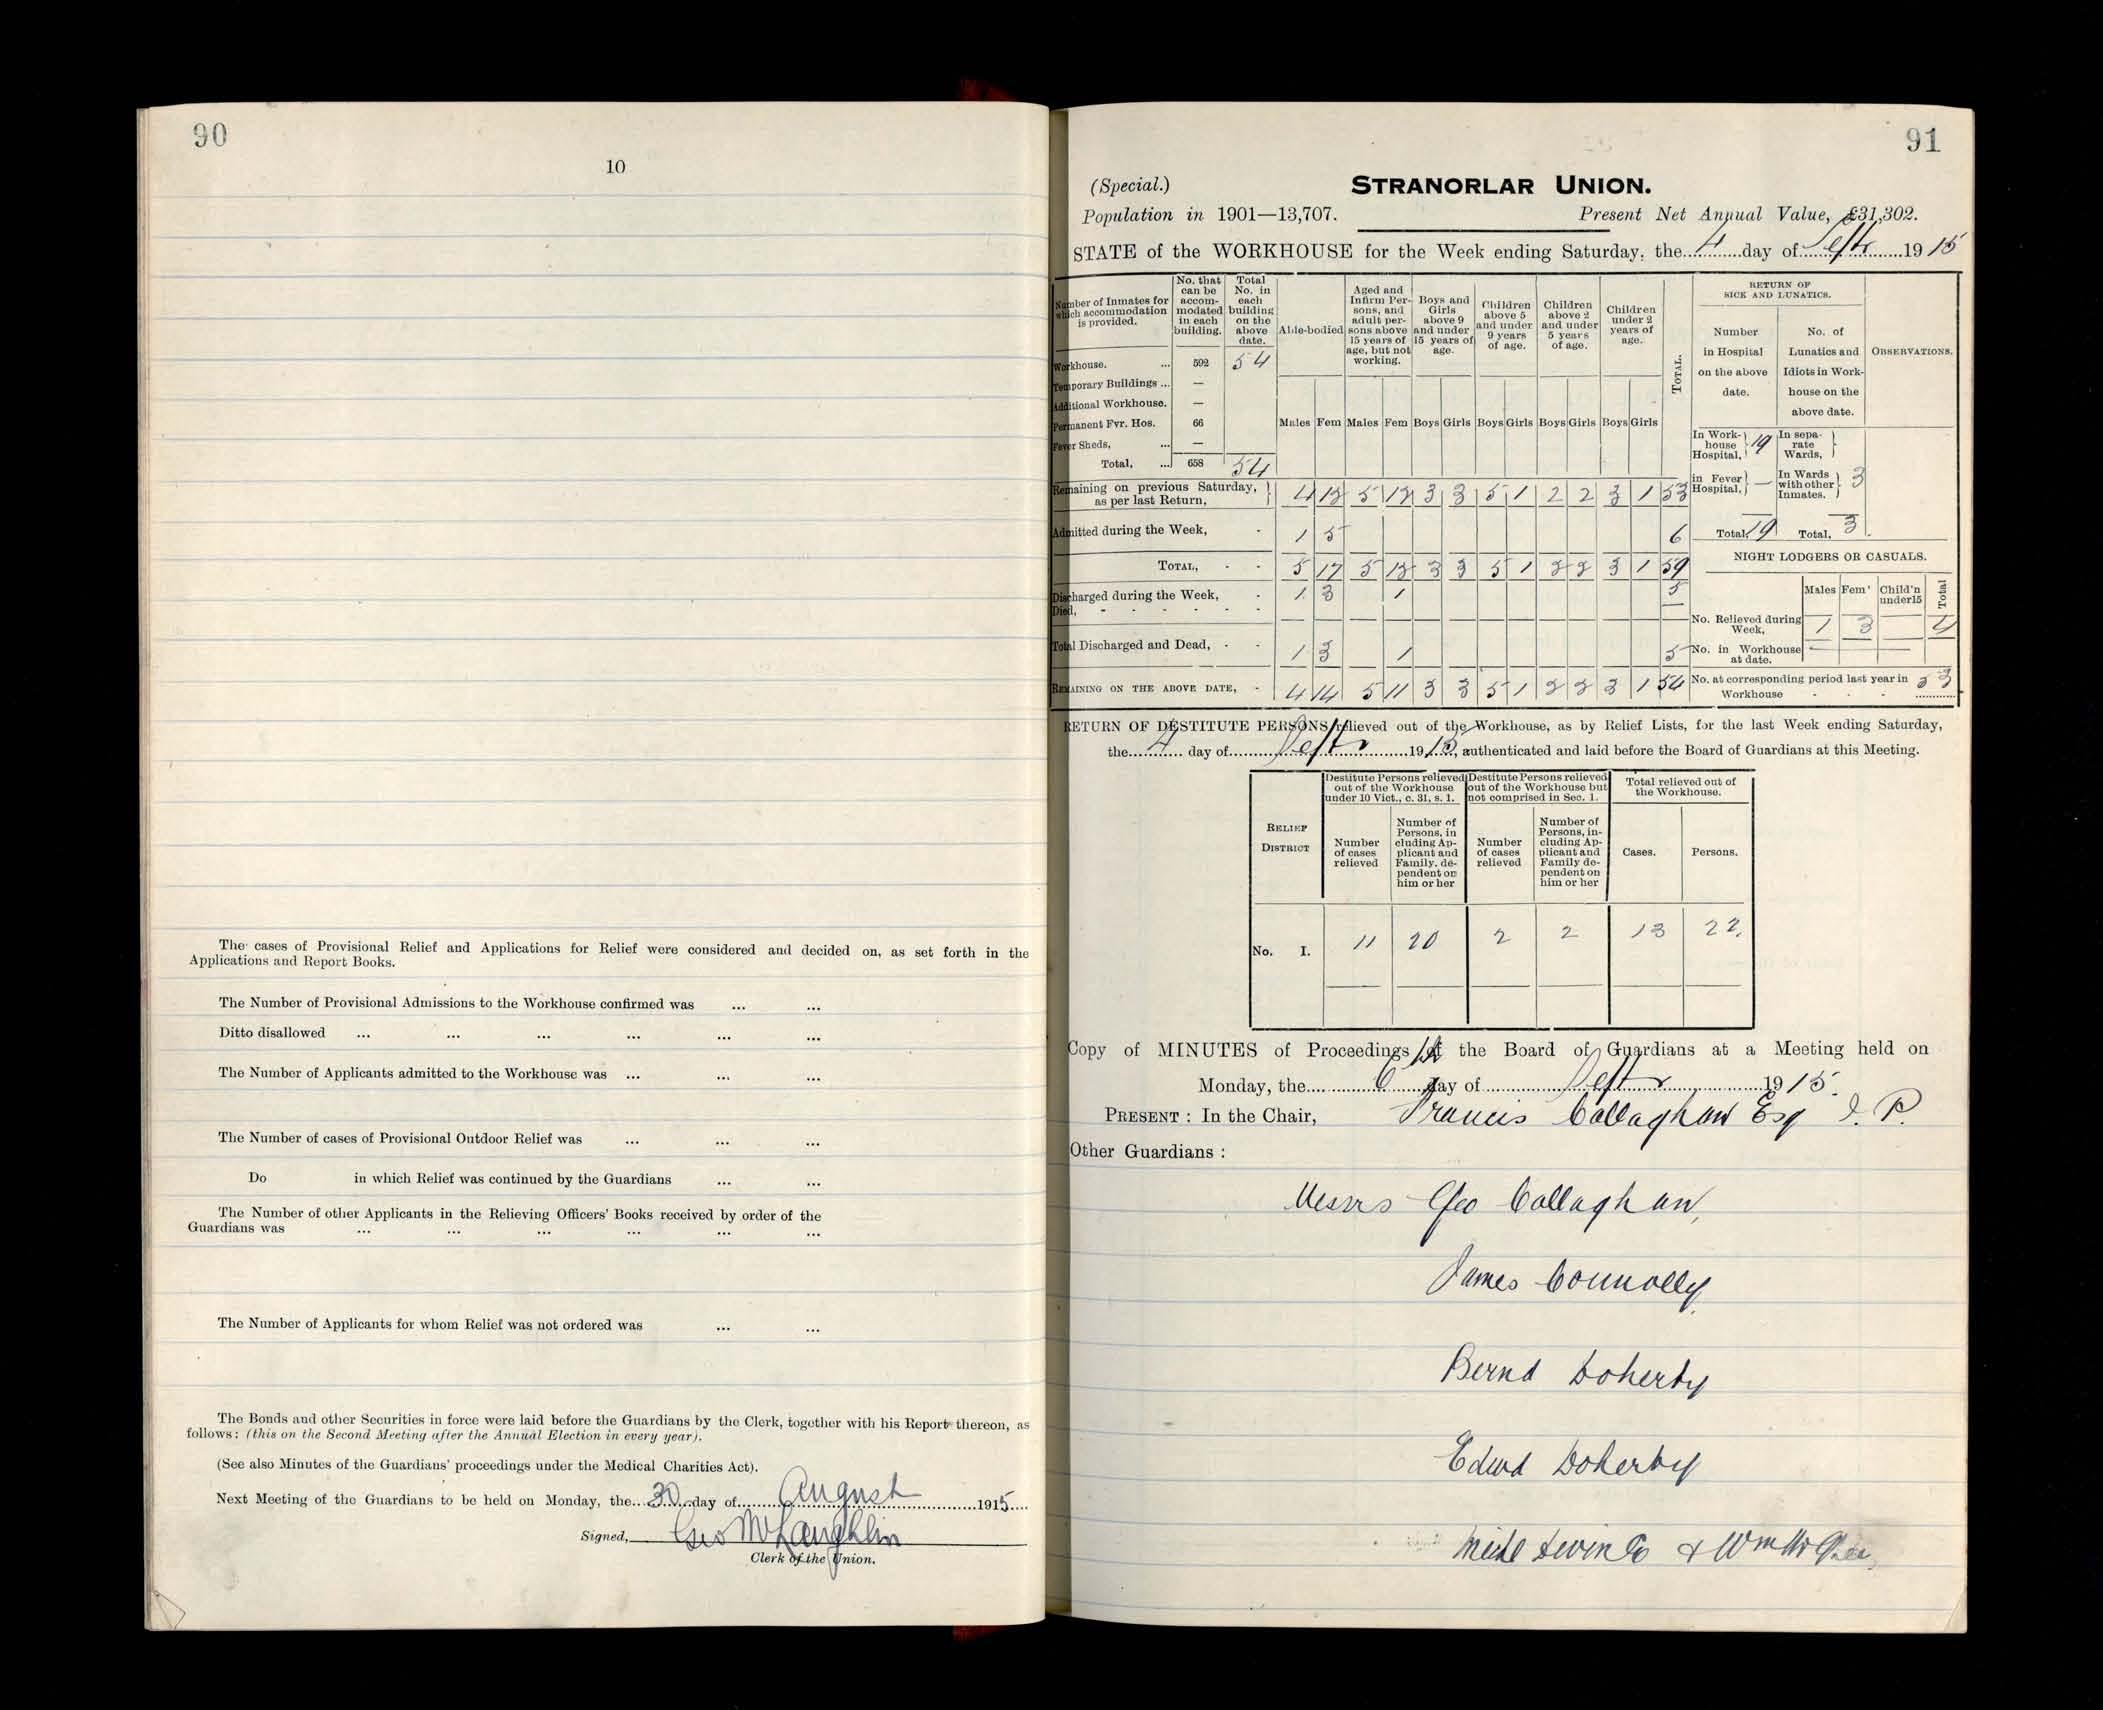 90
10
The cases of Provisional Relief and Applications for Relief were considered and decided on, as set forth in the
Applications and Report Books.
The Number of Provisional Admissions to the Workhouse confirmed was ... ...
Ditto disallowed ... ... ... ... ... ...
The Number of Applicants admitted to the Workhouse was ... ... ...
The Number of cases of Provisional Outdoor Relief was ... ... ...
Do in which Relief was continued by the Guardians ... ...
The Number of other Applicants in the Relieving Officers' Books received by order of the
Guardians was ... ... ... ... ... ...
The Number of Applicants for whom Relief was not ordered was ... ...
The Bonds and other Securities in force were laid before the Guardians by the Clerk, together with his Report thereon, as
follows: (this on the Second Meeting after the Annual Election in every year).
(See also Minutes of the Guardians' proceedings under the Medical Charities Act).
Next Meeting of the Guardians to be held on Monday, the 30 day of August 1915
Signed, Geo McLaughlin
Clerk of the Union.
91
(Special.) STRANORLAR UNION.
Population in 1901—13,707. Present Net Annual Value, £31,302.
STATE of the WORKHOUSE for the Week ending Saturday, the 4 day of Septr 1915
Number of Inmates for which accommodation is provided. No. that can be accommodated in each building. Total No. in each building on the above date. Able-bodied Aged and Infirm Persons, and adult persons above 15 years of age, but not working. Boys and Girls above 9 and under 15 years of age. Children above 5 and under 9 years of age. Children above 2 and under 5 years of age. Children under 2 years of age. TOTAL. RETURN OF SICK AND LUNATICS. Number in Hospital on the above date. No. of Lunatics and Idiots in Workhouse on the above date. OBSERVATIONS.
Workhouse. ... 592 54
Temporary Buildings ... —
Additional Workhouse. —
Permanent Fvr. Hos. 66
Fever Sheds, ... —
Total, ... 658 54
Males Fem Males Fem Boys Girls Boys Girls Boys Girls Boys Girls
In Workhouse Hospital, 19 In separate Wards,
in Fever Hospital, — In Wards with other Inmates. 3
Total, 19 Total, 3
Remaining on previous Saturday, as per last Return, 4 12 5 12 3 3 5 1 2 2 3 1 53
Admitted during the Week, - 1 5 6
TOTAL, - - 5 17 5 12 3 3 5 1 2 2 3 1 59
Discharged during the Week, - 1 3 1 5
Died, - - - - - - —
Total Discharged and Dead, - - 1 3 1 5
REMAINING ON THE ABOVE DATE, - 4 14 5 11 3 3 5 1 2 2 3 1 54
NIGHT LODGERS OR CASUALS.
Males Fem' Child'n under15 Total
No. Relieved during Week, 1 3 4
No. in Workhouse at date.
No. at corresponding period last year in Workhouse - - - 53
RETURN OF DESTITUTE PERSONS relieved out of the Workhouse, as by Relief Lists, for the last Week ending Saturday,
the 4 day of Septr 1915, authenticated and laid before the Board of Guardians at this Meeting.
RELIEF DISTRICT Destitute Persons relieved out of the Workhouse under 10 Vict., c. 31, s. 1. Destitute Persons relieved out of the Workhouse but not comprised in Sec. 1. Total relieved out of the Workhouse.
Number of cases relieved Number of Persons, including Applicant and Family. dependent on him or her Number of cases relieved Number of Persons, including Applicant and Family dependent on him or her Cases. Persons.
No. I. 11 20 2 2 13 22.
Copy of MINUTES of Proceedings of the Board of Guardians at a Meeting held on
Monday, the 6th day of Septr 1915.
PRESENT: In the Chair, Francis Callaghan Esq J. P.
Other Guardians:
Messrs Geo Callaghan,
James Connolly
Bernd Doherty
Edwd Doherty
& Wm